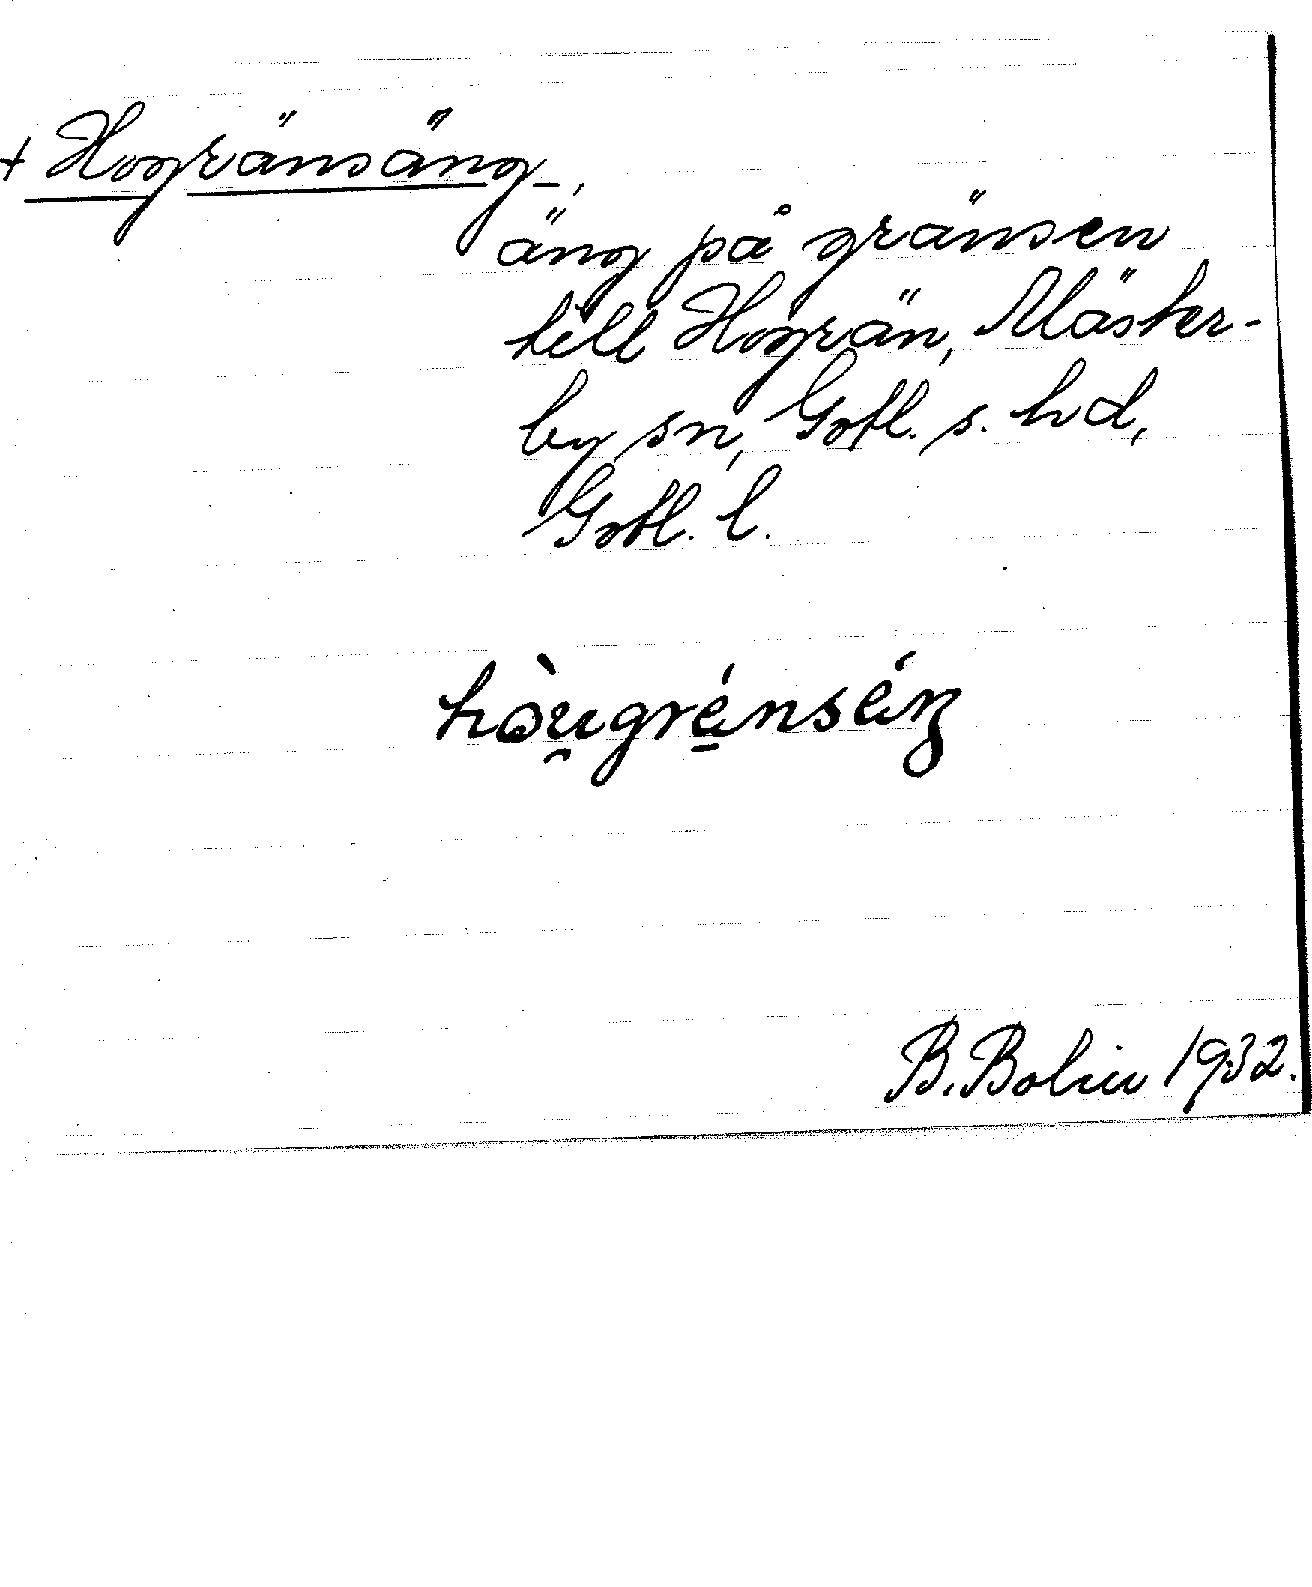 + Hogränsäng,
äng på gränsen
till Hogrän, Mäster-
by sn, Gotl. s. hd,
Gotl. l.
hòu̯gré̱nséŋ
B. Bolin 1932.